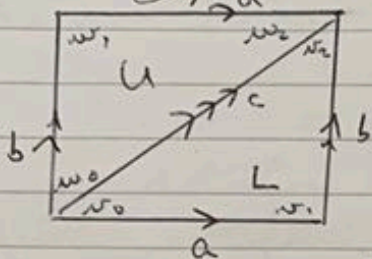 a
w₁ w₂
v₂
U
c
b b
w₀ L
v₀ v₁
a